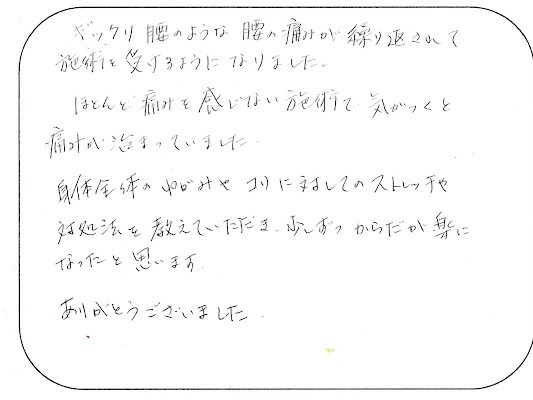 ギックリ腰のような腰の痛みが繰り返されて
施術を受けるようになりました。
ほとんど痛みを感じない施術で、気がつくと
痛みが治まっていました。
身体全体のゆがみやコリに対してのストレッチや
対処法を教えていただき、少しずつからだが楽に
なったと思います。
ありがとうございました。